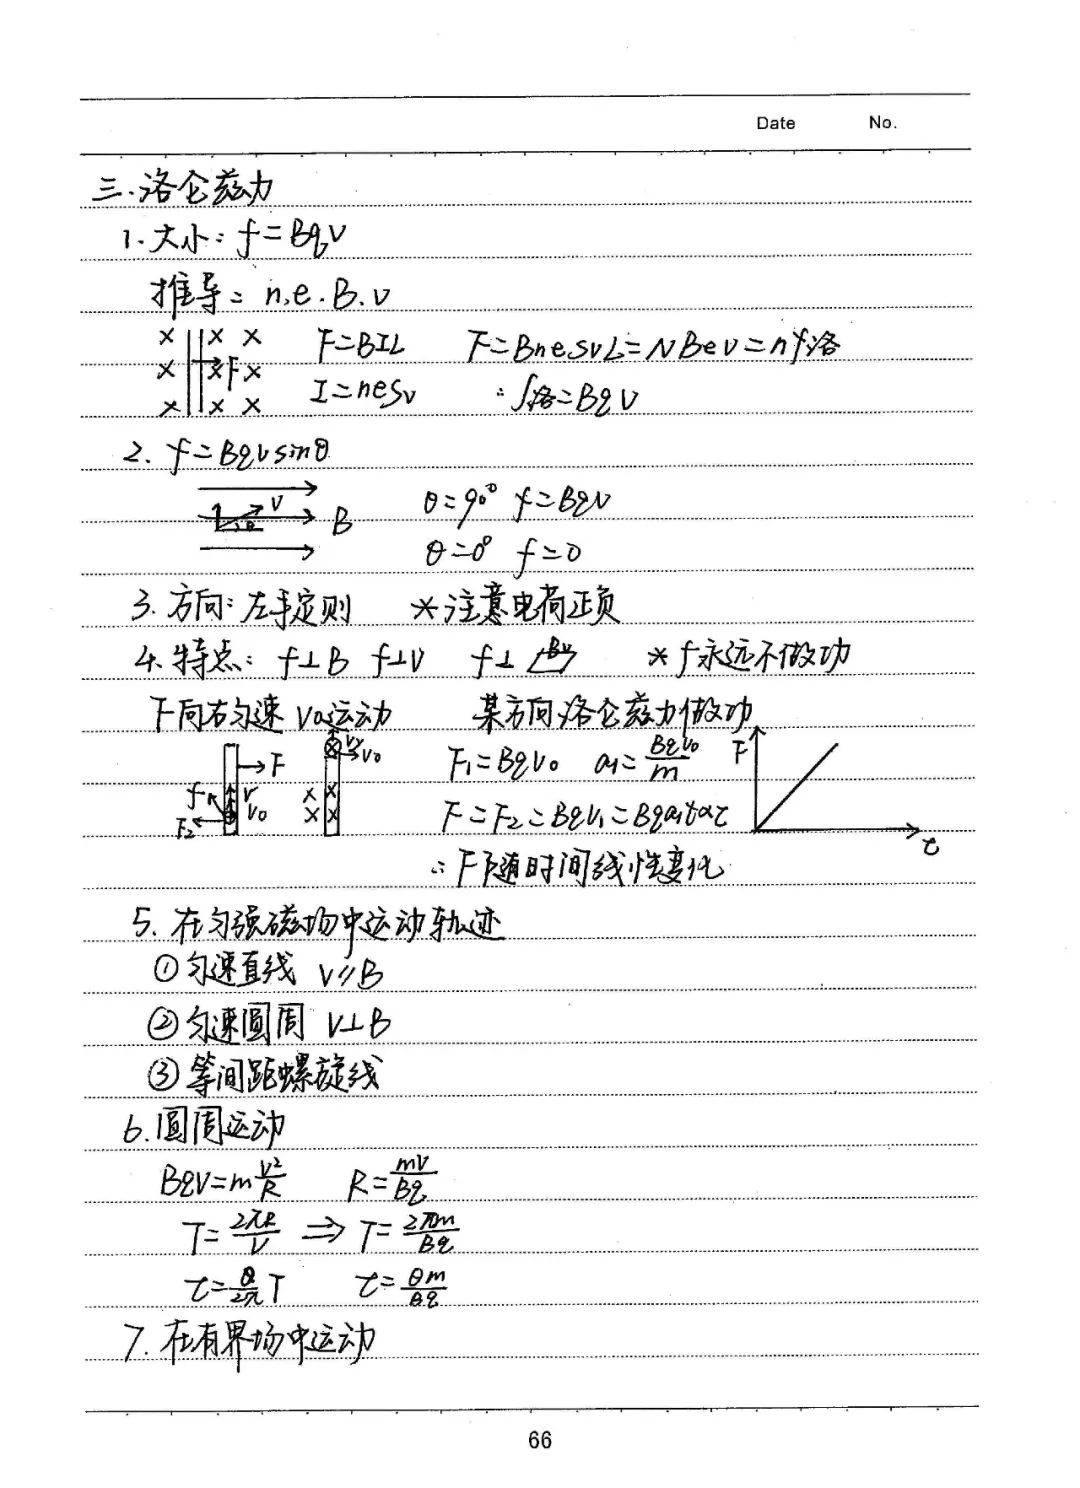 Date No.
三.洛仑兹力
1.大小: f=Bqv
推导: n.e.B.v
× × × F=BIL F=BnesvL=NBev=nf洛
× × F ×
× × × I=nesv ∴f洛=Bqv
2. f=Bqvsinθ
v θ B
θ=90° f=Bqv
θ=0° f=0
3. 方向: 左手定则 *注意电荷正负
4. 特点: f⊥B f⊥v f⊥ Bv *f永远不做功
F向右匀速v₀运动 某方向洛仑兹力做功
F f v v₀ F₂
vy v₀ × × × ×
F₁=Bqv₀ a₁=Bqv₀/m
F=F₂=Bqv₁=Bqa₁t∝t
F t
∴F随时间线性变化
5. 在匀强磁场中运动轨迹
①匀速直线 v∥B
②匀速圆周 v⊥B
③等间距螺旋线
6.圆周运动
Bqv=m v²/R R=mv/Bq
T=2πR/v ⇒ T=2πm/Bq
t=θ/2π T t=θm/Bq
7. 在有界场中运动
66